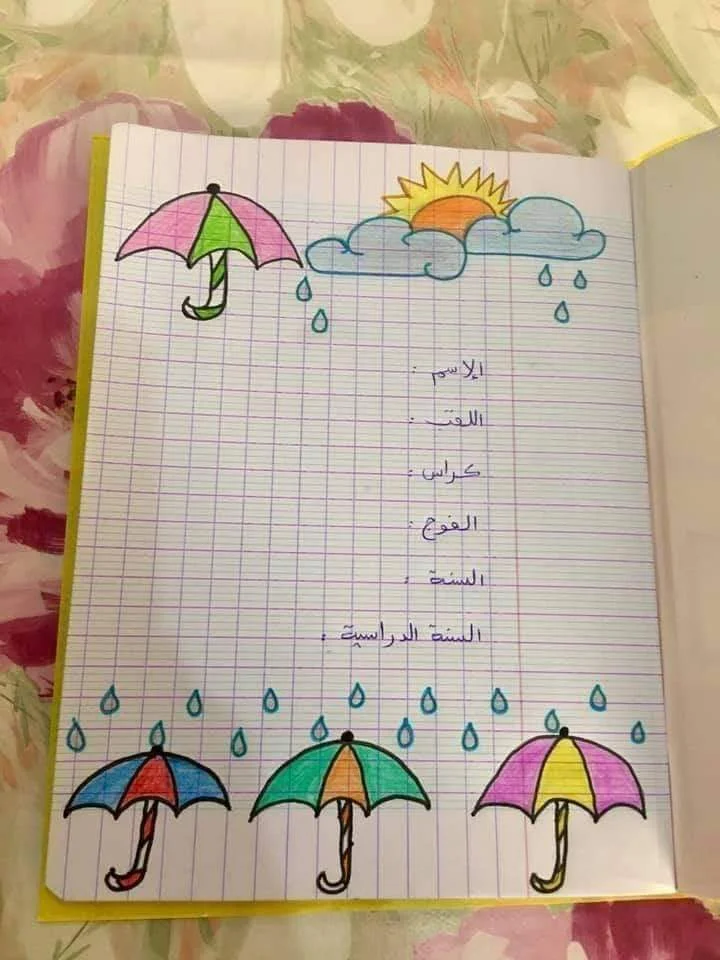 الإسم :
اللقب :
كراس :
الفوج :
السنة :
السنة الدراسية :